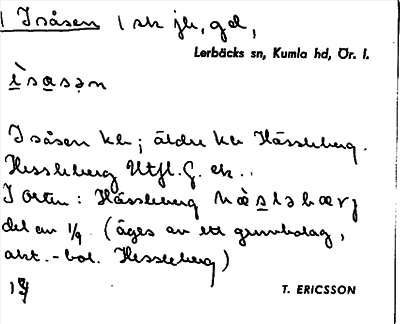 Isåsen 1 sk jb, gd,
Lerbäcks sn, Kumla hd, Ör. l.
ìsasən
Isåsen kb; äldre kb Hässleberg.
Hessleberg Utfl. G. ek..
I orten: Hässleberg
del av 1/9. (äges av ett gruvbolag,
akt.-bol. Hessleberg)
T. ERICSSON